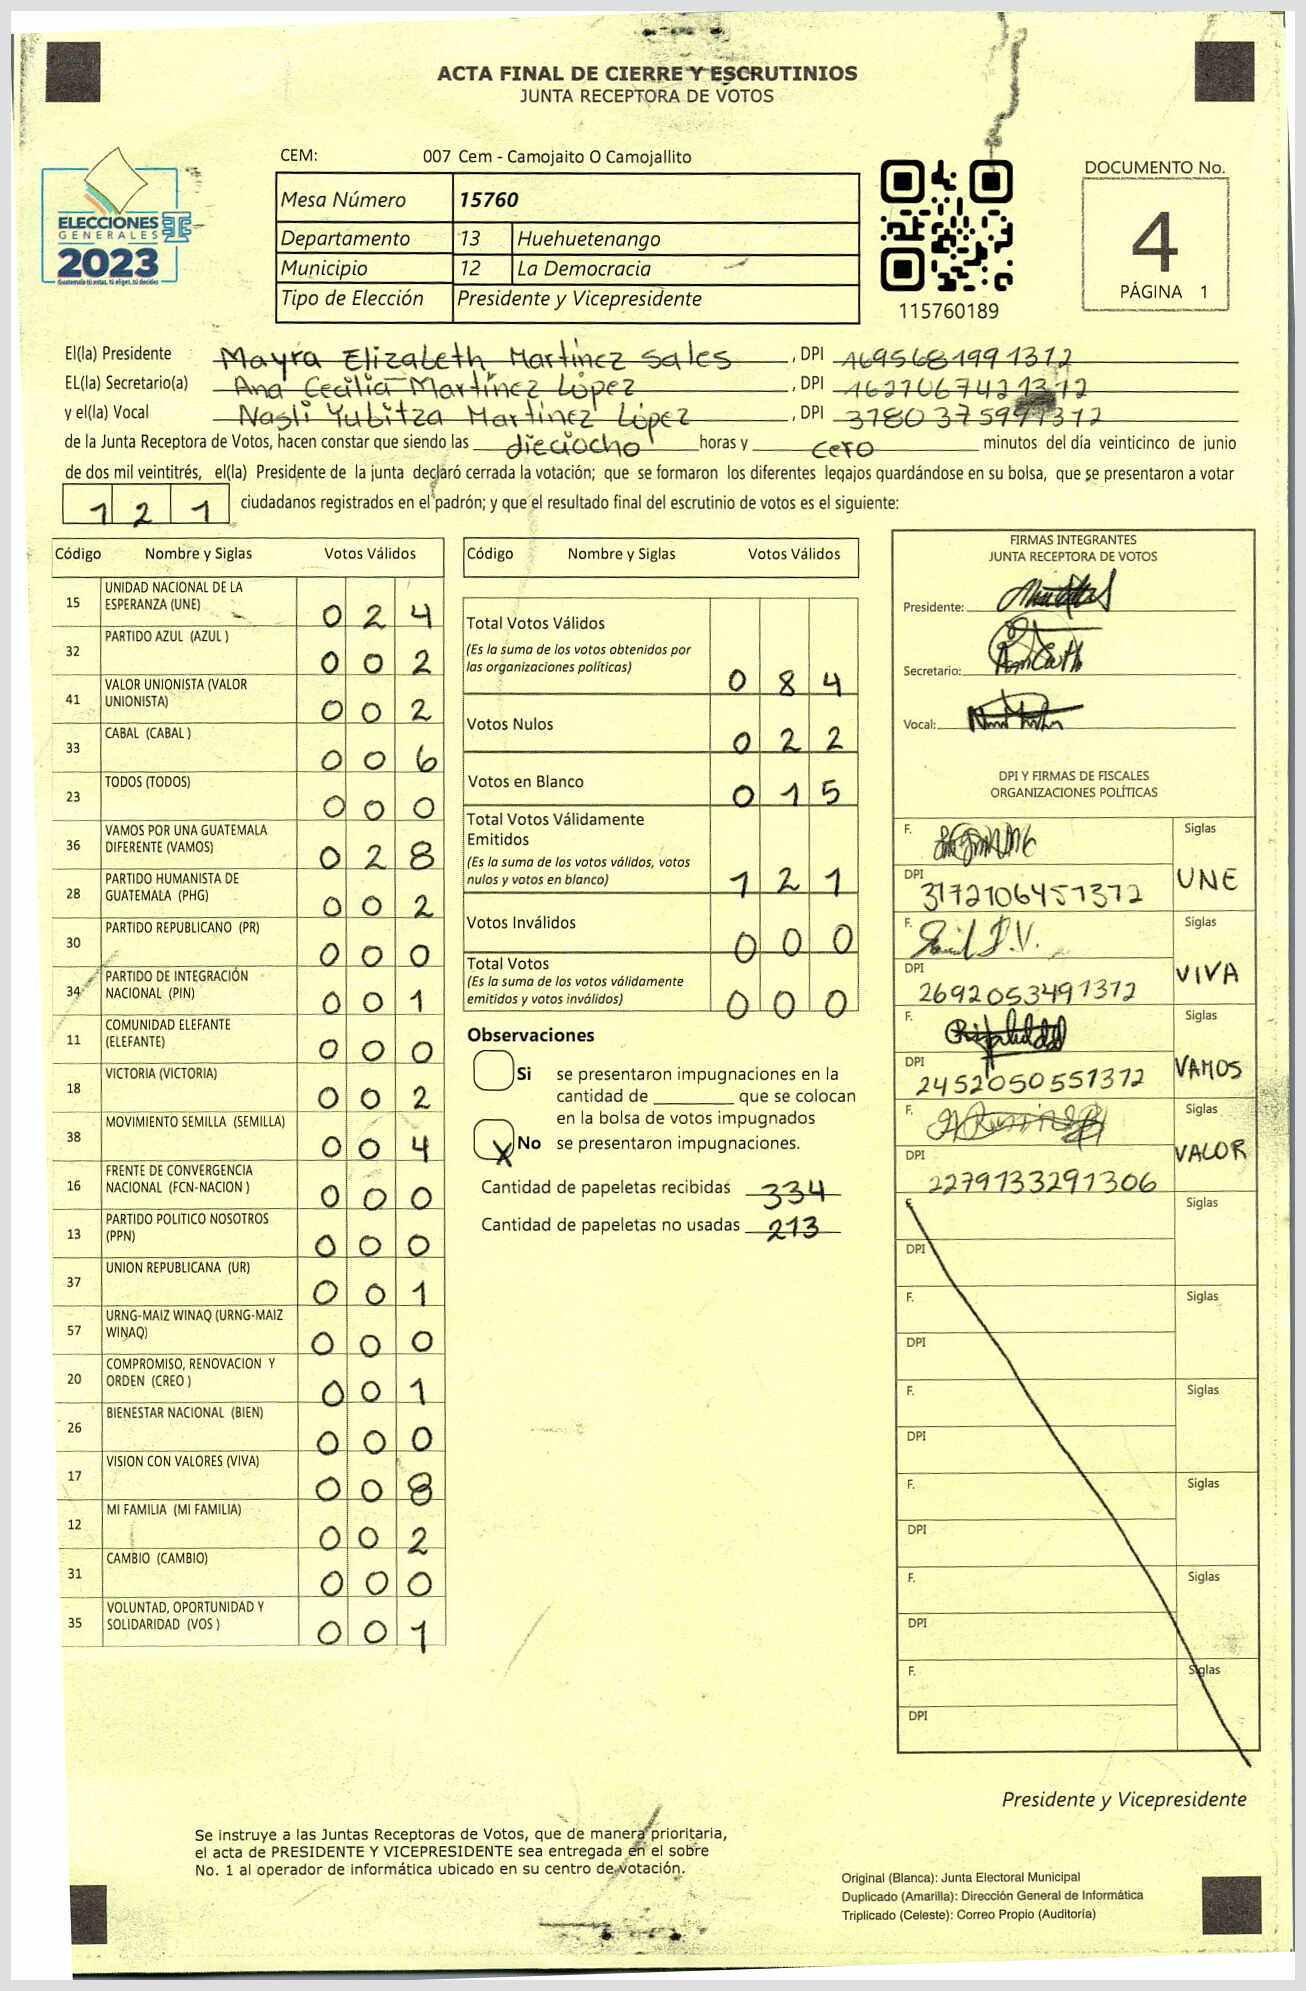 ACTA FINAL DE CIERRE Y ESCRUTINIOS
JUNTA RECEPTORA DE VOTOS
CEM: 007 Cem - Camojaito O Camojallito
ELECCIONES
GENERALES
2023
Mesa Número 15760
Departamento 13 Huehuetenango
Municipio 12 La Democracia
Tipo de Elección Presidente y Vicepresidente
115760189
DOCUMENTO No.
4
PÁGINA 1
El(la) Presidente Mayra Elizabeth Martínez Sales, DPI 1695681991312
EL(la) Secretario(a) Ana Cecilia Martínez López, DPI
y el(la) Vocal Nasli Yubitza Martínez López, DPI
de la Junta Receptora de Votos, hacen constar que siendo las dieciocho horas y cero minutos del día veinticinco de junio
de dos mil veintitrés, el(la) Presidente de la junta declaró cerrada la votación; que se formaron los diferentes legajos guardándose en su bolsa, que se presentaron a votar
121 ciudadanos registrados en el padrón; y que el resultado final del escrutinio de votos es el siguiente:
Código Nombre y Siglas Votos Válidos
15 UNIDAD NACIONAL DE LA
ESPERANZA (UNE) 0 2 4
32 PARTIDO AZUL (AZUL ) 0 0 2
41 VALOR UNIONISTA (VALOR
UNIONISTA) 0 0 2
33 CABAL (CABAL ) 0 0 6
23 TODOS (TODOS) 0 0 0
36 VAMOS POR UNA GUATEMALA
DIFERENTE (VAMOS) 0 2 8
28 PARTIDO HUMANISTA DE
GUATEMALA (PHG) 0 0 2
30 PARTIDO REPUBLICANO (PR) 0 0 0
34 PARTIDO DE INTEGRACIÓN
NACIONAL (PIN) 0 0 1
11 COMUNIDAD ELEFANTE
(ELEFANTE) 0 0 0
18 VICTORIA (VICTORIA) 0 0 2
38 MOVIMIENTO SEMILLA (SEMILLA) 0 0 4
16 FRENTE DE CONVERGENCIA
NACIONAL (FCN-NACION ) 0 0 0
13 PARTIDO POLITICO NOSOTROS
(PPN) 0 0 0
37 UNION REPUBLICANA (UR) 0 0 1
57 URNG-MAIZ WINAQ (URNG-MAIZ
WINAQ) 0 0 0
20 COMPROMISO, RENOVACION Y
ORDEN (CREO ) 0 0 1
26 BIENESTAR NACIONAL (BIEN) 0 0 0
17 VISION CON VALORES (VIVA) 0 0 8
12 MI FAMILIA (MI FAMILIA) 0 0 2
31 CAMBIO (CAMBIO) 0 0 0
35 VOLUNTAD, OPORTUNIDAD Y
SOLIDARIDAD (VOS ) 0 0 1
Código Nombre y Siglas Votos Válidos
Total Votos Válidos
(Es la suma de los votos obtenidos por
las organizaciones políticas) 0 8 4
Votos Nulos 0 2 2
Votos en Blanco 0 1 5
Total Votos Válidamente
Emitidos
(Es la suma de los votos válidos, votos
nulos y votos en blanco) 1 2 1
Votos Inválidos 0 0 0
Total Votos
(Es la suma de los votos válidamente
emitidos y votos inválidos) 0 0 0
Observaciones
Si se presentaron impugnaciones en la
cantidad de ________ que se colocan
en la bolsa de votos impugnados
X No se presentaron impugnaciones.
Cantidad de papeletas recibidas 334
Cantidad de papeletas no usadas 213
FIRMAS INTEGRANTES
JUNTA RECEPTORA DE VOTOS
Presidente:
Secretario:
Vocal:
DPI Y FIRMAS DE FISCALES
ORGANIZACIONES POLÍTICAS
F. Siglas
DPI 3172106451312 UNE
F. Siglas
DPI 2692053491312 VIVA
F. Siglas
DPI 2452050551312 VAMOS
F. Siglas
DPI 2279133291306 VALOR
Siglas
DPI
F. Siglas
DPI
F. Siglas
DPI
F. Siglas
DPI
F. Siglas
DPI
F. Siglas
DPI
Presidente y Vicepresidente
Se instruye a las Juntas Receptoras de Votos, que de manera prioritaria,
el acta de PRESIDENTE Y VICEPRESIDENTE sea entregada en el sobre
No. 1 al operador de informática ubicado en su centro de votación.
Original (Blanca): Junta Electoral Municipal
Duplicado (Amarilla): Dirección General de Informática
Triplicado (Celeste): Correo Propio (Auditoría)